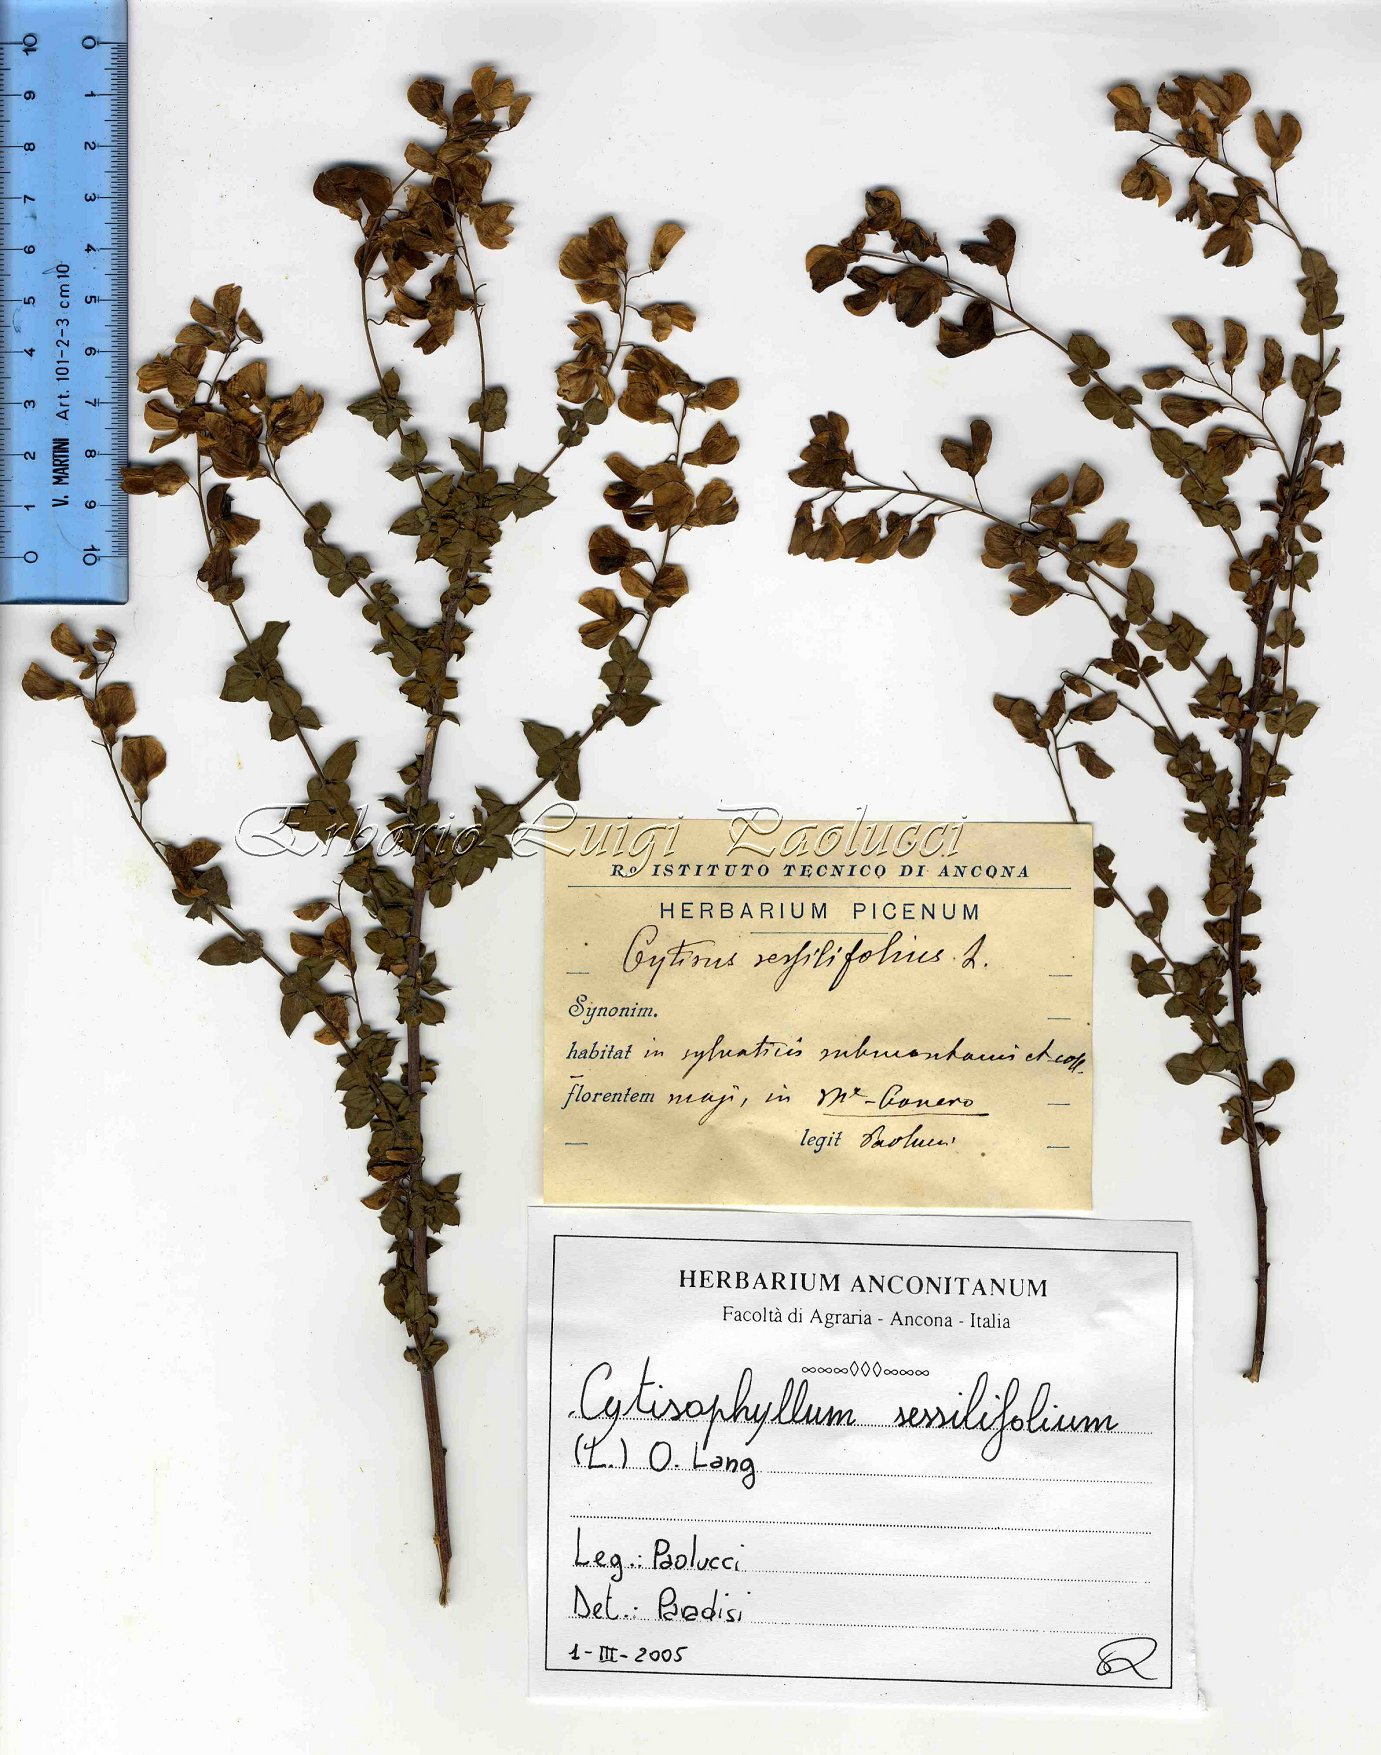 10 9 8 7 6 5 4 3 2 1 0
0 1 2 3 4 5 6 7 8 9 10
V. MARTINI Art. 101-2-3 cm 10
Erbario Luigi Paolucci
Rº ISTITUTO TECNICO DI ANCONA
HERBARIUM PICENUM
Cytisus sessilifolius. L.
Synonim.
habitat in sylvaticis submontanis et coll.
florentem maji, in Mte Conero
legit Paolucci
HERBARIUM ANCONITANUM
Facoltà di Agraria - Ancona - Italia
Cytisophyllum sessilifolium
(L.) O. Lang
Leg.: Paolucci
Det.: Paradisi
1-III-2005